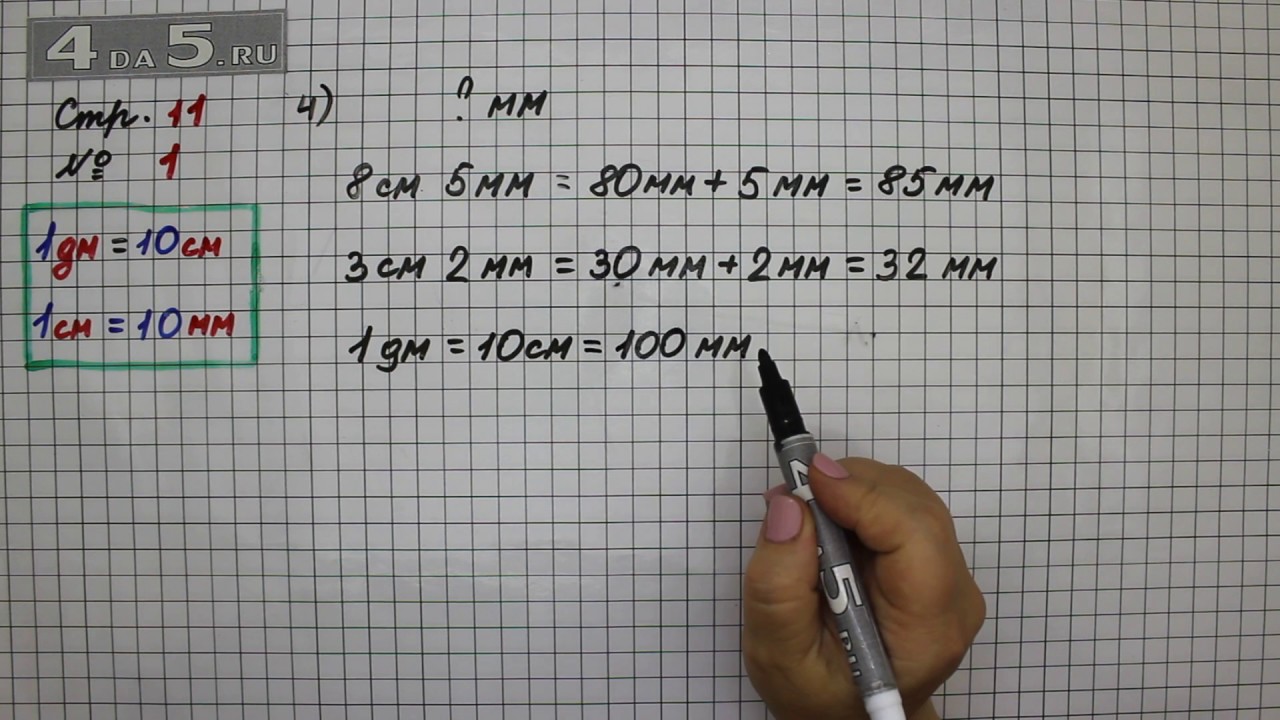 4 DA 5.RU
Стр. 11
№ 1
1дм = 10см
1см = 10мм
4) ? мм
8см 5мм = 80мм + 5мм = 85мм
3см 2мм = 30мм + 2мм = 32 мм
1дм = 10см = 100мм